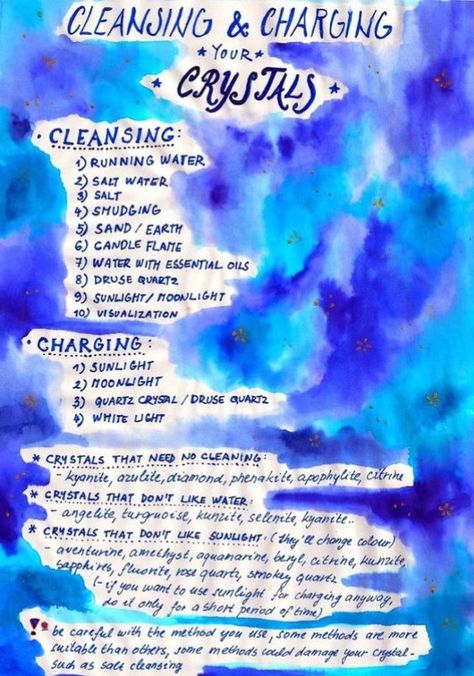 CLEANSING & CHARGING
* YOUR *
* CRYSTALS *
• CLEANSING:
1) RUNNING WATER
2) SALT WATER
3) SALT
4) SMUDGING
5) SAND / EARTH
6) CANDLE FLAME
7) WATER WITH ESSENTIAL OILS
8) DRUSE QUARTZ
9) SUNLIGHT / MOONLIGHT
10) VISUALIZATION
• CHARGING:
1) SUNLIGHT
2) MOONLIGHT
3) QUARTZ CRYSTAL / DRUSE QUARTZ
4) WHITE LIGHT
* CRYSTALS THAT NEED NO CLEANING:
- kyanite, azulite, diamond, phenakite, apophylite, citrine
* CRYSTALS THAT DON'T LIKE WATER:
- angelite, turquoise, kunzite, selenite, kyanite..
* CRYSTALS THAT DON'T LIKE SUNLIGHT: (they'll change colour)
- aventurine, amethyst, aquamarine, beryl, citrine, kunzite,
sapphires, fluorite, rose quartz, smokey quartz
(- if you want to use sunlight for charging anyway,
do it only for a short period of time)
! be careful with the method you use, some methods are more
suitable than others, some methods could damage your crystal -
such as salt cleansing